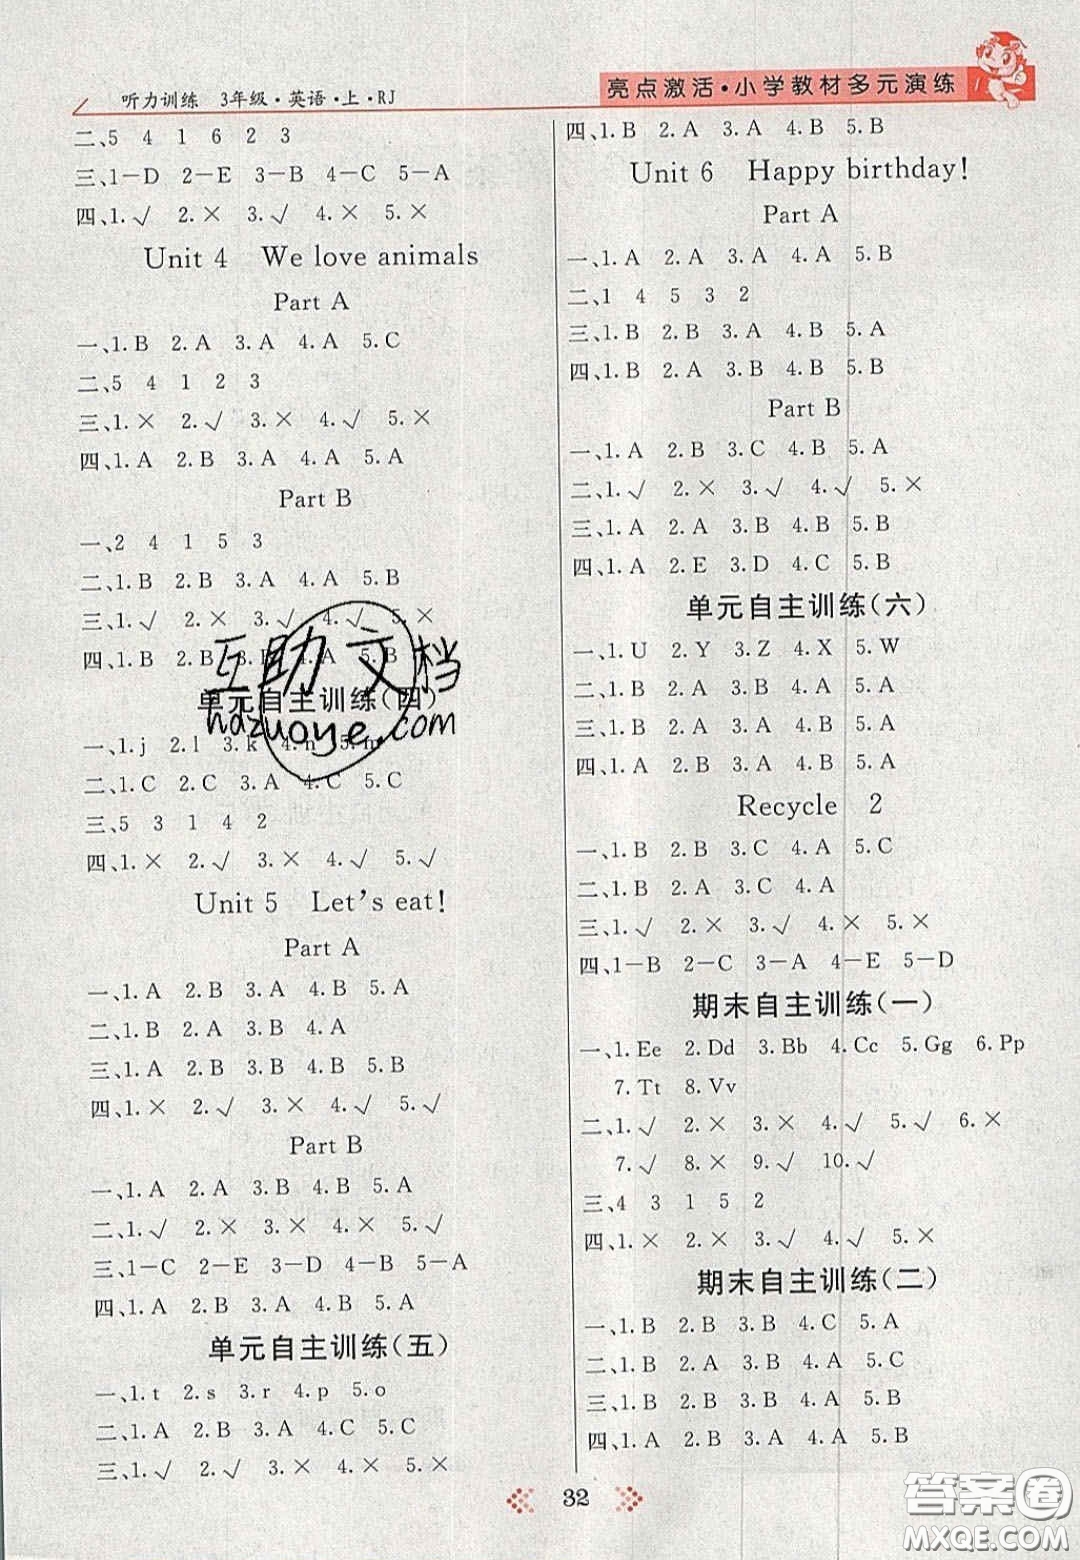 听力训练 3年级·英语·上·RJ
亮点激活·小学教材多元演练
二、5 4 1 6 2 3
三、1-D 2-E 3-B 4-C 5-A
四、1.√ 2.× 3.√ 4.× 5.×
Unit 4 We love animals
Part A
一、1.B 2.A 3.A 4.A 5.C
二、5 4 1 2 3
三、1.× 2.√ 3.× 4.√ 5.×
四、1.A 2.B 3.A 4.A 5.A
Part B
一、2 4 1 5 3
二、1.B 2.B 3.A 4.A 5.B
三、1.√ 2.× 3.√ 4.√ 5.×
四、1.B 2.B 3. 4.A 5.B
单元自主训练(四)
一、1.j 2.l 3.k 4.n 5.m
二、1.C 2.C 3.A 4.C 5.C
三、5 3 1 4 2
四、1.× 2.√ 3.√ 4.× 5.√
Unit 5 Let's eat!
Part A
一、1.A 2.B 3.A 4.B 5.A
二、1.B 2.A 3.B 4.A
三、1.A 2.B 3.A 4.B 5.B
四、1.× 2.√ 3.× 4.√ 5.√
Part B
一、1.A 2.A 3.B 4.B 5.A
二、1.√ 2.× 3.× 4.× 5.√
三、1-C 2-E 3-D 4-B 5-A
四、1.A 2.B 3.A 4.B 5.A
单元自主训练(五)
一、1.t 2.s 3.r 4.p 5.o
二、1.A 2.B 3.A 4.C 5.C
三、1.√ 2.√ 3.× 4.× 5.√
四、1.B 2.A 3.A 4.B 5.B
Unit 6 Happy birthday!
Part A
一、1.A 2.A 3.A 4.A 5.B
二、1 4 5 3 2
三、1.B 2.B 3.A 4.B 5.A
四、1.B 2.A 3.A 4.B 5.B
Part B
一、1.A 2.B 3.C 4.B 5.A
二、1.√ 2.× 3.√ 4.√ 5.×
三、1.A 2.A 3.B 4.B 5.B
四、1.A 2.E 3.D 4.C 5.B
单元自主训练(六)
一、1.U 2.Y 3.Z 4.X 5.W
二、1.B 2.A 3.B 4.A 5.A
三、1.B 2.A 3.A 4.B 5.B
四、1.A 2.B 3.B 4.A 5.A
Recycle 2
一、1.B 2.B 3.A 4.A 5.C
二、1.B 2.A 3.C 4.A
三、1.√ 2.× 3.√ 4.× 5.×
四、1-B 2-C 3-A 4-E 5-D
期末自主训练(一)
一、1.Ee 2.Dd 3.Bb 4.Cc 5.Gg 6.Pp
7.Tt 8.Vv
二、1.√ 2.× 3.× 4.√ 5.√ 6.×
7.√ 8.× 9.√ 10.√
三、4 3 1 5 2
四、1.× 2.× 3.√ 4.√ 5.×
期末自主训练(二)
一、1.B 2.B 3.B 4.C 5.A
二、1.B 2.A 3.B 4.A 5.C
三、1.B 2.B 3.A 4.B 5.A
四、1.A 2.B 3.A 4.A 5.B
32
互助文档
hdzuoye.com
答案圈
MXQE.COM